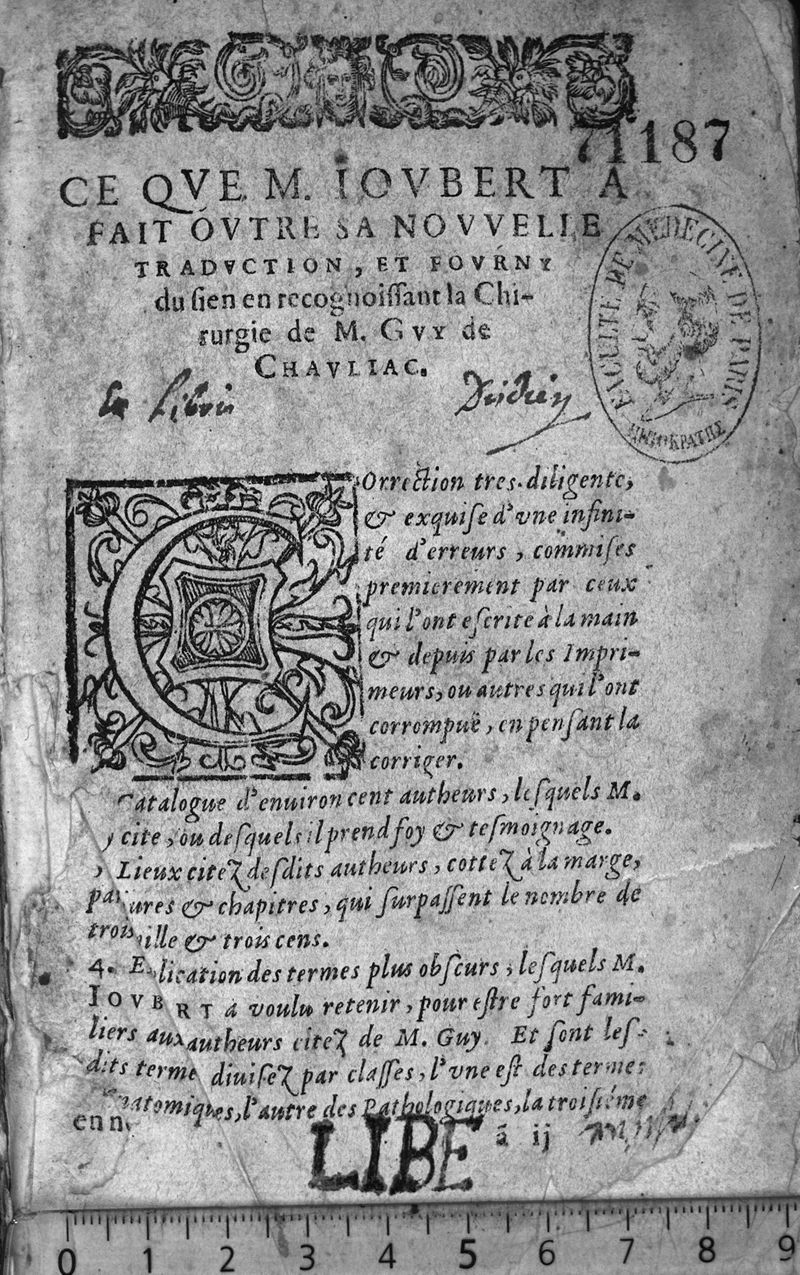 71187
CE QVE M. IOVBERT A
FAIT OVTRE SA NOVVELLE
TRADVCTION, ET FOVRNY
du ſien en recognoiſſant la Chi-
rurgie de M. GVY de
CHAVLIAC.
FACULTE DE MEDECINE DE PARIS
ΙΠΠΟΚΡΑΤΗΣ
Ex Libris
COrrection tres-diligente,
& exquiſe d'vne infini-
té d'erreurs, commiſes
premierement par ceux
qui l'ont eſcrite à la main
& depuis par les Impri-
meurs, ou autres qui l'ont
corrompuë, en penſant la
corriger.
Catalogue d'enuiron cent autheurs, leſquels M.
cite, ou deſquels il prend foy & teſmoignage.
Lieux citez deſdits autheurs, cottez à la marge,
par ures & chapitres, qui ſurpaſſent le nombre de
trois ille & trois cens.
4. E lication des termes plus obſcurs, leſquels M.
IOVB RT a voulu retenir, pour eſtre fort fami-
liers aux autheurs citez de M. Guy. Et ſont leſ-
dits terme diuiſez par claſſes, l'vne eſt des termes
natomiques, l'autre des Pathologiques, la troiſiéme
enn
ã ij
LIBE
0 1 2 3 4 5 6 7 8 9